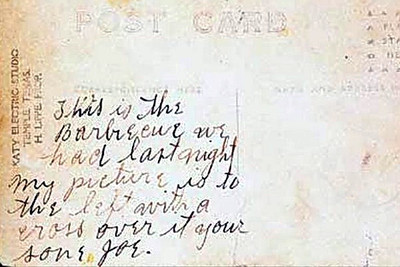 POST CARD
CORRESPONDENCE HERE
NAME AND ADDRESS HERE
KATY ELECTRIC STUDIO
TEMPLE TEXAS.
H. LIPPE PROP.
This is the
Barbecue we
had last night
My picture is to
the left with a
cross over it your
sone Joe.